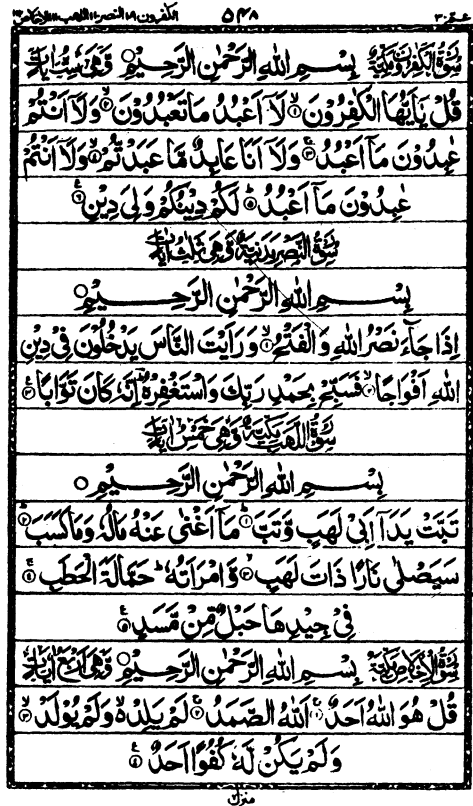 عم ٣٠ ٥٤٨ الكفرون ١٠٩ النصر ١١٠ اللهب ١١١ الاخلاص ١١٢
سُوْرَةُ الْكٰفِرُوْنَ مَكِّيَّةٌ بِسْمِ اللهِ الرَّحْمٰنِ الرَّحِيْمِ ○ وَّهِيَ سِتُّ اٰيَاتٍ
قُلْ يٰٓاَيُّهَا الْكٰفِرُوْنَ ۙ﴿١﴾ لَآ اَعْبُدُ مَا تَعْبُدُوْنَ ۙ﴿٢﴾ وَلَآ اَنْتُمْ
عٰبِدُوْنَ مَآ اَعْبُدُ ۚ﴿٣﴾ وَلَآ اَنَا عَابِدٌ مَّا عَبَدْتُّمْ ۙ﴿٤﴾ وَلَآ اَنْتُمْ
عٰبِدُوْنَ مَآ اَعْبُدُ ؕ﴿٥﴾ لَكُمْ دِيْنُكُمْ وَلِيَ دِيْنِ ﴿٦﴾
سُوْرَةُ النَّصْرِ مَدَنِيَّةٌ وَّهِيَ ثَلٰثُ اٰيَاتٍ
بِسْمِ اللهِ الرَّحْمٰنِ الرَّحِيْمِ ○
اِذَا جَآءَ نَصْرُ اللهِ وَالْفَتْحُ ۙ﴿١﴾ وَرَاَيْتَ النَّاسَ يَدْخُلُوْنَ فِيْ دِيْنِ
اللهِ اَفْوَاجًا ۙ﴿٢﴾ فَسَبِّحْ بِحَمْدِ رَبِّكَ وَاسْتَغْفِرْهُ ؕ اِنَّهٗ كَانَ تَوَّابًا ﴿٣﴾
سُوْرَةُ اللَّهَبِ مَكِّيَّةٌ وَّهِيَ خَمْسُ اٰيَاتٍ
بِسْمِ اللهِ الرَّحْمٰنِ الرَّحِيْمِ ○
تَبَّتْ يَدَآ اَبِيْ لَهَبٍ وَّتَبَّ ؕ﴿١﴾ مَآ اَغْنٰى عَنْهُ مَالُهٗ وَمَا كَسَبَ ؕ﴿٢﴾
سَيَصْلٰى نَارًا ذَاتَ لَهَبٍ ۚۖ﴿٣﴾ وَّامْرَاَتُهٗ ؕ حَمَّالَةَ الْحَطَبِ ۚ﴿٤﴾
فِيْ جِيْدِهَا حَبْلٌ مِّنْ مَّسَدٍ ﴿٥﴾
سُوْرَةُ الْاِخْلَاصِ مَكِّيَّةٌ بِسْمِ اللهِ الرَّحْمٰنِ الرَّحِيْمِ ○ وَّهِيَ اَرْبَعُ اٰيَاتٍ
قُلْ هُوَ اللهُ اَحَدٌ ۚ﴿١﴾ اَللهُ الصَّمَدُ ۚ﴿٢﴾ لَمْ يَلِدْ ۙ۬ وَلَمْ يُوْلَدْ ۙ﴿٣﴾
وَلَمْ يَكُنْ لَّهٗ كُفُوًا اَحَدٌ ﴿٤﴾
منزل